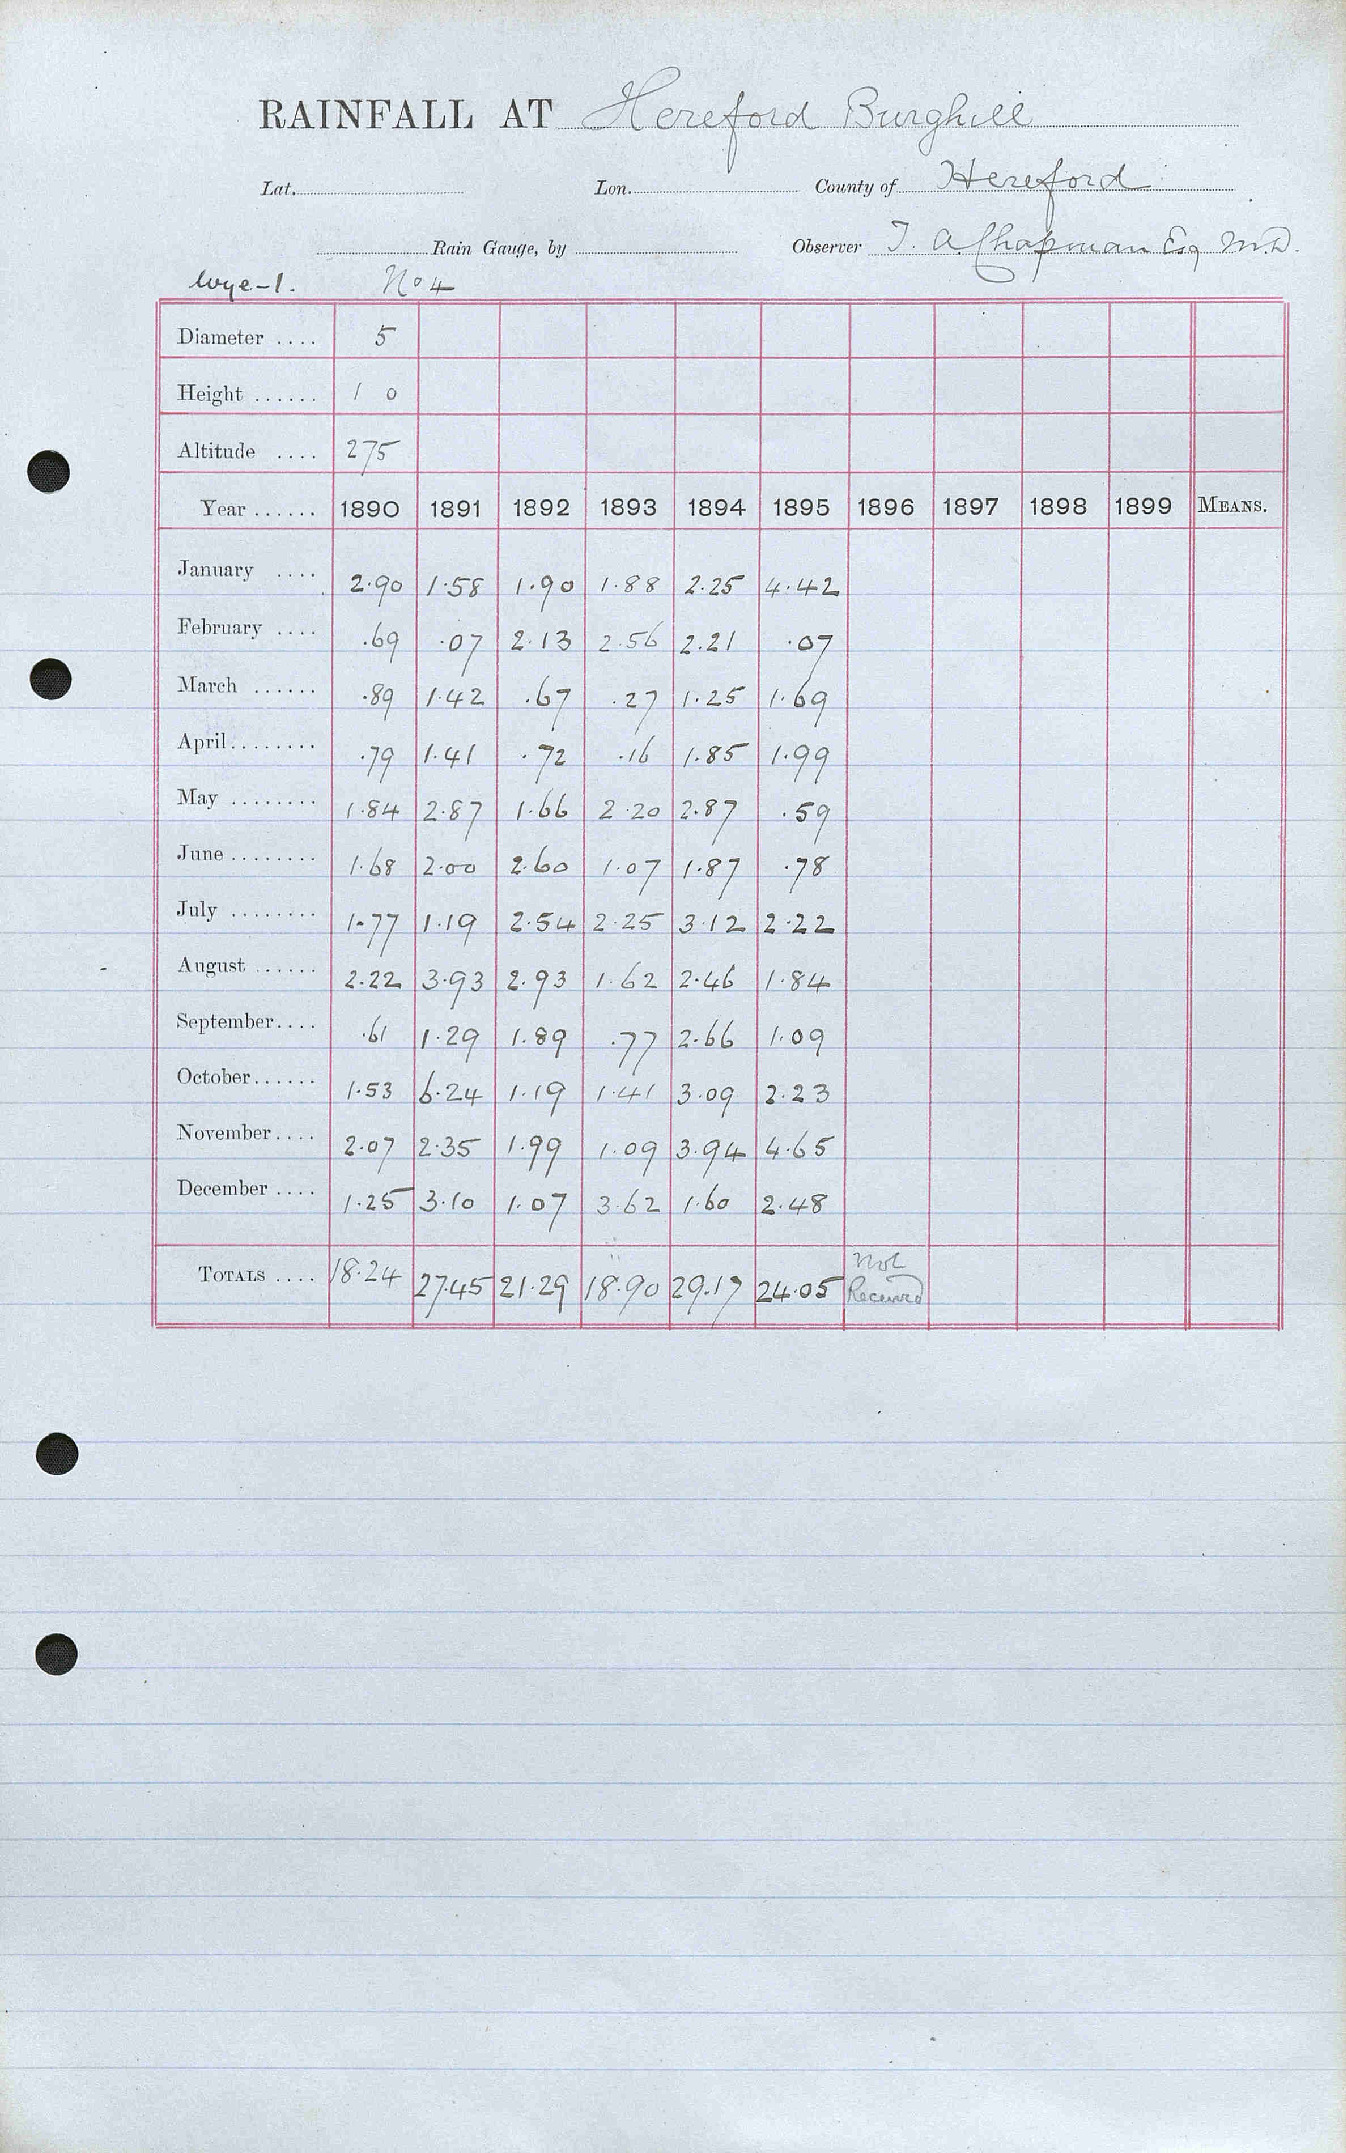 RAINFALL AT Hereford Burghill
Lat. Lon. County of Hereford
Rain Gauge, by Observer T. A. Chapman Esq M.D.
Wye-1. No 4
Diameter .... 5
Height ...... 1 0
Altitude .... 275
Year ...... 1890 1891 1892 1893 1894 1895 1896 1897 1898 1899 MEANS.
January .... 2.90 1.58 1.90 1.88 2.25 4.42
February .... .69 .07 2.13 2.56 2.21 .07
March ...... .89 1.42 .67 .27 1.25 1.69
April........ .79 1.41 .72 .16 1.85 1.99
May ........ 1.84 2.87 1.66 2.20 2.87 .59
June ........ 1.68 2.00 2.60 1.07 1.87 .78
July ........ 1.77 1.19 2.54 2.25 3.12 2.22
August ...... 2.22 3.93 2.93 1.62 2.46 1.84
September.... .61 1.29 1.89 .77 2.66 1.09
October...... 1.53 6.24 1.19 1.41 3.09 2.23
November.... 2.07 2.35 1.99 1.09 3.94 4.65
December .... 1.25 3.10 1.07 3.62 1.60 2.48
TOTALS .... 18.24 27.45 21.29 18.90 29.17 24.05 Not Received